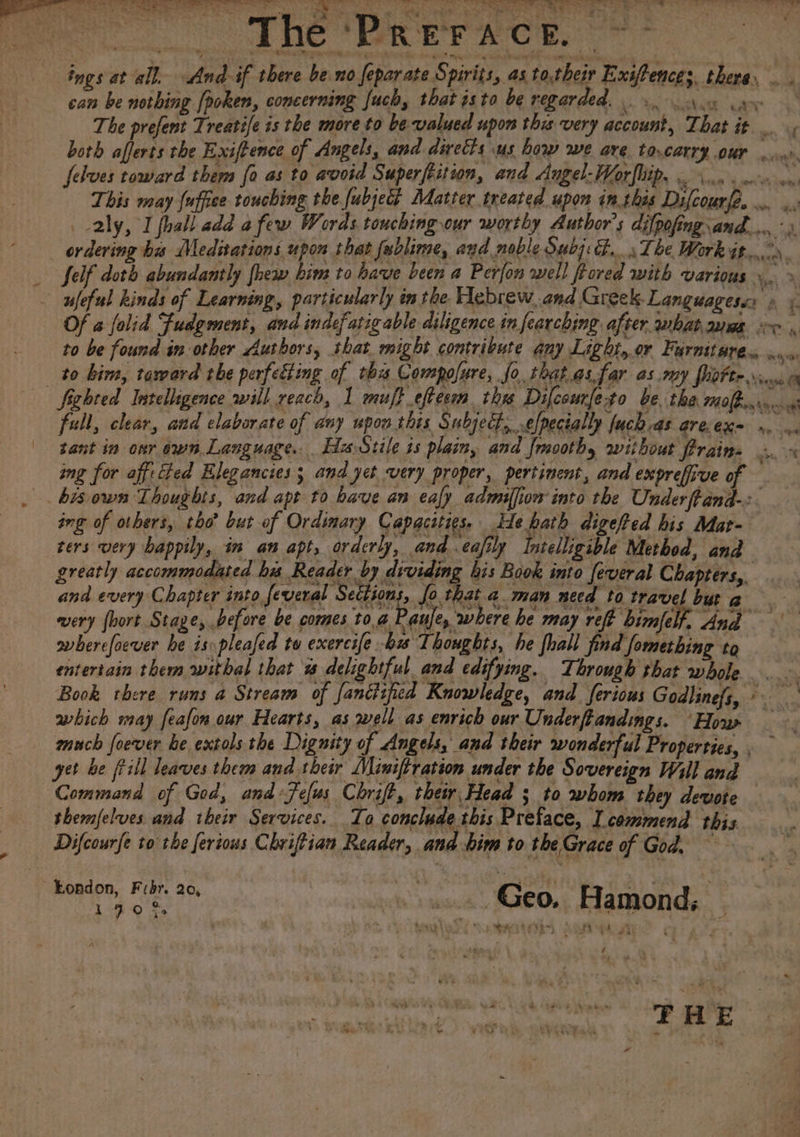 The PREFACE.
ings at all. And if there be no ſeparate Spirits, as to their Exiſtence; there
can be nothing ſpoken, concerning ſuch, that is to be regarded.
The preſent Treatiſe is the more to be valued upon this very account, That it
both aſſerts the Exiſtence of Angels, and directs us how we are to carry our
ſelves toward them ſo as to avoid Superſtition, and Angel-Worſhip.
This may ſuffice touching the ſubject Matter treated upon in this Diſcourſe.
aly, I ſhall add a few Words touching our worthy Author's diſpoſing and
ordering his Meditations upon that ſublime, and noble Subject. The Work it
ſelf doth abundantly ſhew him to have been a Perſon well ſtored with various
uſeful kinds of Learning, particularly in the Hebrew and Greek Languages:
Of a ſolid Judgment, and indefatigable diligence in ſearching after what was
to be found in other Authors, that might contribute any Light, or Furniture
to him, toward the perfecting of this Compoſure, ſo that as far as my ſhort-
ſighted Intelligence will reach, I muſt eſteem this Diſcourſe to be the moſt
full, clear, and elaborate of any upon this Subject, eſpecially ſuch as are ex-
tant in our own Language. His Stile is plain, and ſmooth, without ſtrain-
ing for affected Elegancies; and yet very proper, pertinent, and expreſſive of
his own Thoughts, and apt to have an eaſy admiſſion into the Underſtand-
ing of others, tho' but of Ordinary Capacities. He hath digeſted his Mat-
ters very happily, in an apt, orderly, and eaſily Intelligible Method, and
greatly accommodated his Reader by dividing his Book into ſeveral Chapters,
and every Chapter into ſeveral Sections, ſo that a man need to travel but a
very ſhort Stage, before he comes to a Pauſe, where he may reſt himſelf. And
whereſoever he is pleaſed to exerciſe his Thoughts, he ſhall find ſomething to
entertain them withal that is delightful and edifying. Through that whole
Book there runs a Stream of ſanctified Knowledge, and ſerious Godlineſs,
which may ſeaſon our Hearts, as well as enrich our Underſtandings. How
much ſoever he extols the Dignity of Angels, and their wonderful Properties,
yet he ſtill leaves them and their Miniſtration under the Sovereign Will and
Command of God, and Jeſus Chriſt, their Head; to whom they devote
themſelves and their Services. To conclude this Preface, I commend this
Diſcourſe to the ſerious Chriſtian Reader, and him to the Grace of God.
London, Febr. 20,
Geo. Hamond.
THE